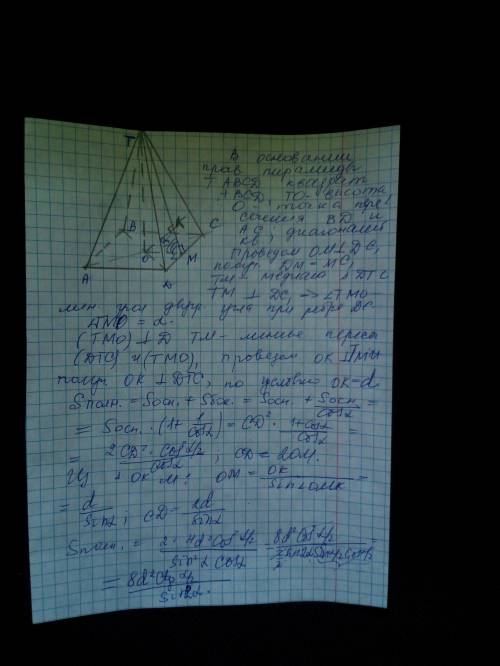 T
В основании
прав. пирамиды
TABCD квадрат
ABCD, TO - высота
O - точка пере
сечения BD и
AC, диагоналей
кв., 
B
K
C
O
M
A
D
Проведем OM⊥DC,
получ DM = MC,
TM - медиана ΔDTC
TM ⊥ DC, => ∠TMO -
лин угол двугр угла при ребре DC
∠TMO = α.
(TMO) ⊥ D TM - линия перес.
(DTC) и (TMO), проведем OK ⊥ TM
получ OK ⊥ DTC, по условию OK = d.
Sполн. = Sосн. + Sбок. = Sосн. + Sосн./cosα =
= Sосн. · (1 + 1/cosα) = CD² · (1+cosα)/cosα =
= 2CD² · cos² α/2 / cosα ; CD = 2OM.
Из Δ OKM: OM = OK/sin∠OMK =
= d/sinα ; CD = 2d/sinα
Sполн. = 2 · 4d² cos² α/2 / sin²α cosα = 8d² cos² α/2
= 8d² ctg α/2 / sin2α.